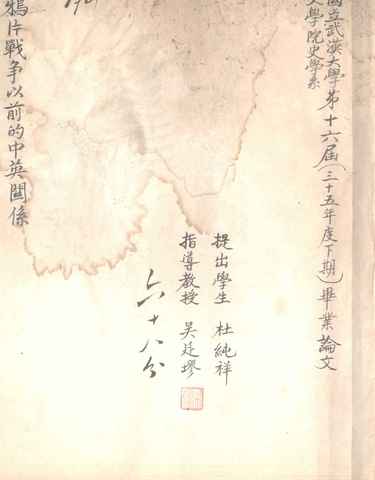 國立武漢大學第十六屆(三十五年度下期)畢業論文
文學院史學系
提出學生 杜純祥
指導教授 吳廷璆
六十八分
鴉片戰爭以前的中英關係